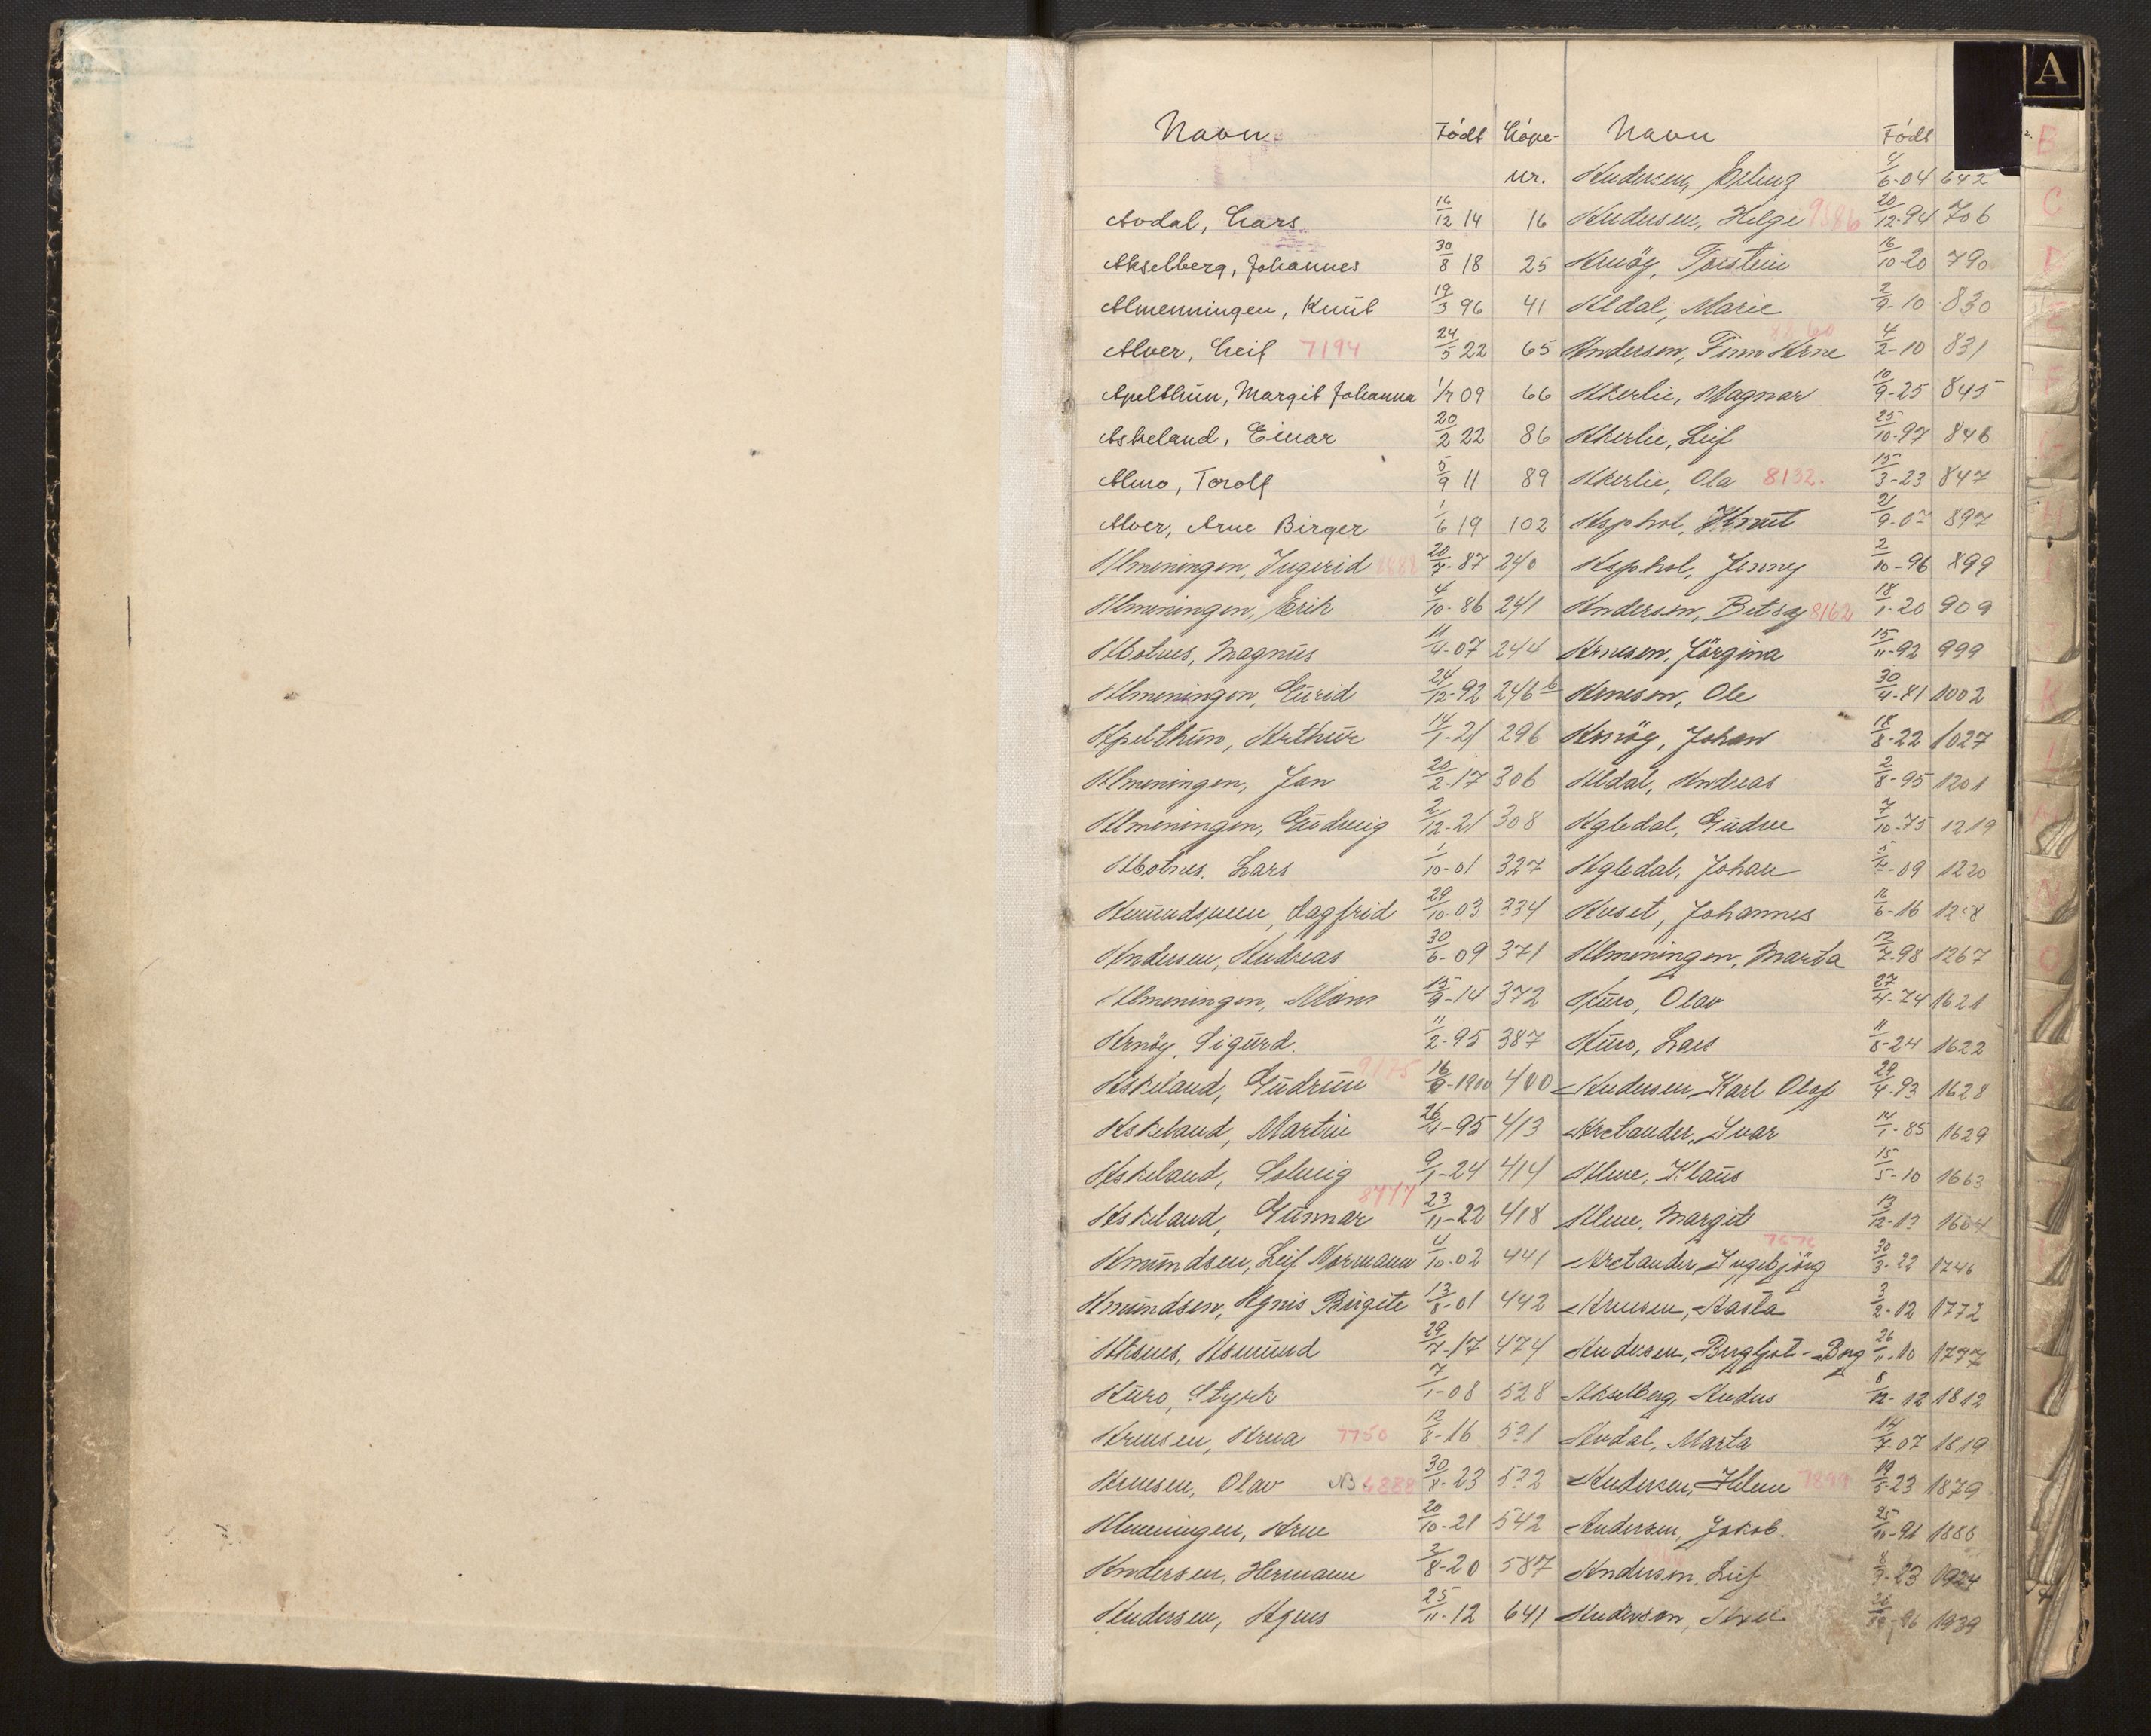 A
Navn Födt Löpe-nr.
Avdal, Lars 16/12 14 16
Akselberg, Johannes 30/8 18 25
Almenningen, Knut 19/3 96 41
Alver, Leif 7194 24/5 22 65
Apelthun, Margit Johanna 1/7 09 66
Askeland, Einar 20/2 22 86
Almo, Torolf 5/9 11 89
Alver, Arne Birger 1/6 19 102
Almeningen, Ingerid 20/7-87 240
Almeningen, Erik 4/10-86 241
Abotnes, Magnus 11/4-07 244
Almeningen, Gurid 24/12-92 246 b
Apelthun, Arthur 14/1-21 296
Almeningen, Jan 20/2-17 306
Almeningen, Ludvig 2/12-21 308
Abotnes, Lars 1/10-01 327
Amundsen, Dagfrid 29/10-03 334
Andersen, Andreas 30/6-09 371
Almeningen, Mons 15/9-14 372
Arnöy, Sigurd. 11/2-95 387
Askeland, Gudrun 9175 16/9-1900 400
Askeland, Martin 26/4-95 413
Askeland, Solveig 9/1-24 414
Askeland, Gunnar 23/11-22 418
Amundsen, Leif Normann 4/10-02 441
Amundsen, Agnis Birgite 13/8-01 442
Aksnes, Asmund 29/7-17 474
Auro, Styrk 7/1-08 528
Arnesen, Arna 7750 12/8-16 531
Arnesen, Olav NB 4888 30/8-23 532
Almeningen, Arne 20/10-21 542
Andersen, Hermann 3/8-20 587
Andersen, Agnes 25/11-12 641
Navn Födt
Andersen, Erling 4/6-04 642
Andersen, Helge 9886 20/12-94 706
Arnöy, Torstein 16/10-20 790
Aldal, Marie 2/9-10 830
Andersen, Finn Arne 4/2-10 831
Akerlie, Magnar 10/9-25 845
Akerlie, Leif 25/10-97 846
Akerlie, Ola 8132. 15/3-23 847
Asphol, Knut 897
Asphol, Jenny 2/10-96 899
Andersen, Betsy 8162 18/1-20 909
Arnesen, Jörgina 15/11-92 999
Arnesen, Ole 30/4-81 1002
Arnöy, Johan 18/8-22 1027
Aldal, Andreas 2/8-95 1201
Agledal, Gudne 7/10-75 1219
Agledal, Johan 09 1220
Auset, Johannes 16/6-16
Almeningen, Marta 13/7-98 1267
Auro, Olav 27/4-74 1621
Auro, Lars 11/8-24 1622
Andersen, Karl Olaf 29/4-93 1628
Arctander, Ivar 14/1-85 1629
Alme, Klaus 15/5-10 1663
Alme, Margit 13/12-13 1664
Arctander, Ingebjörg 30/3-22 1746
Arnesen, Aasta 3/2-12 1772
Andersen, Bergljot-Borg 26/11-10 1777
Akselberg, Andus 8/12-12 1812
Avdal, Marta 14/7-07 1819
Andersen, Helene 7899 19/5-23 1879
Andersen, Jakob. 25/10-91
Andersen, Leif
Andersen, 1939
B
C
D
E
F